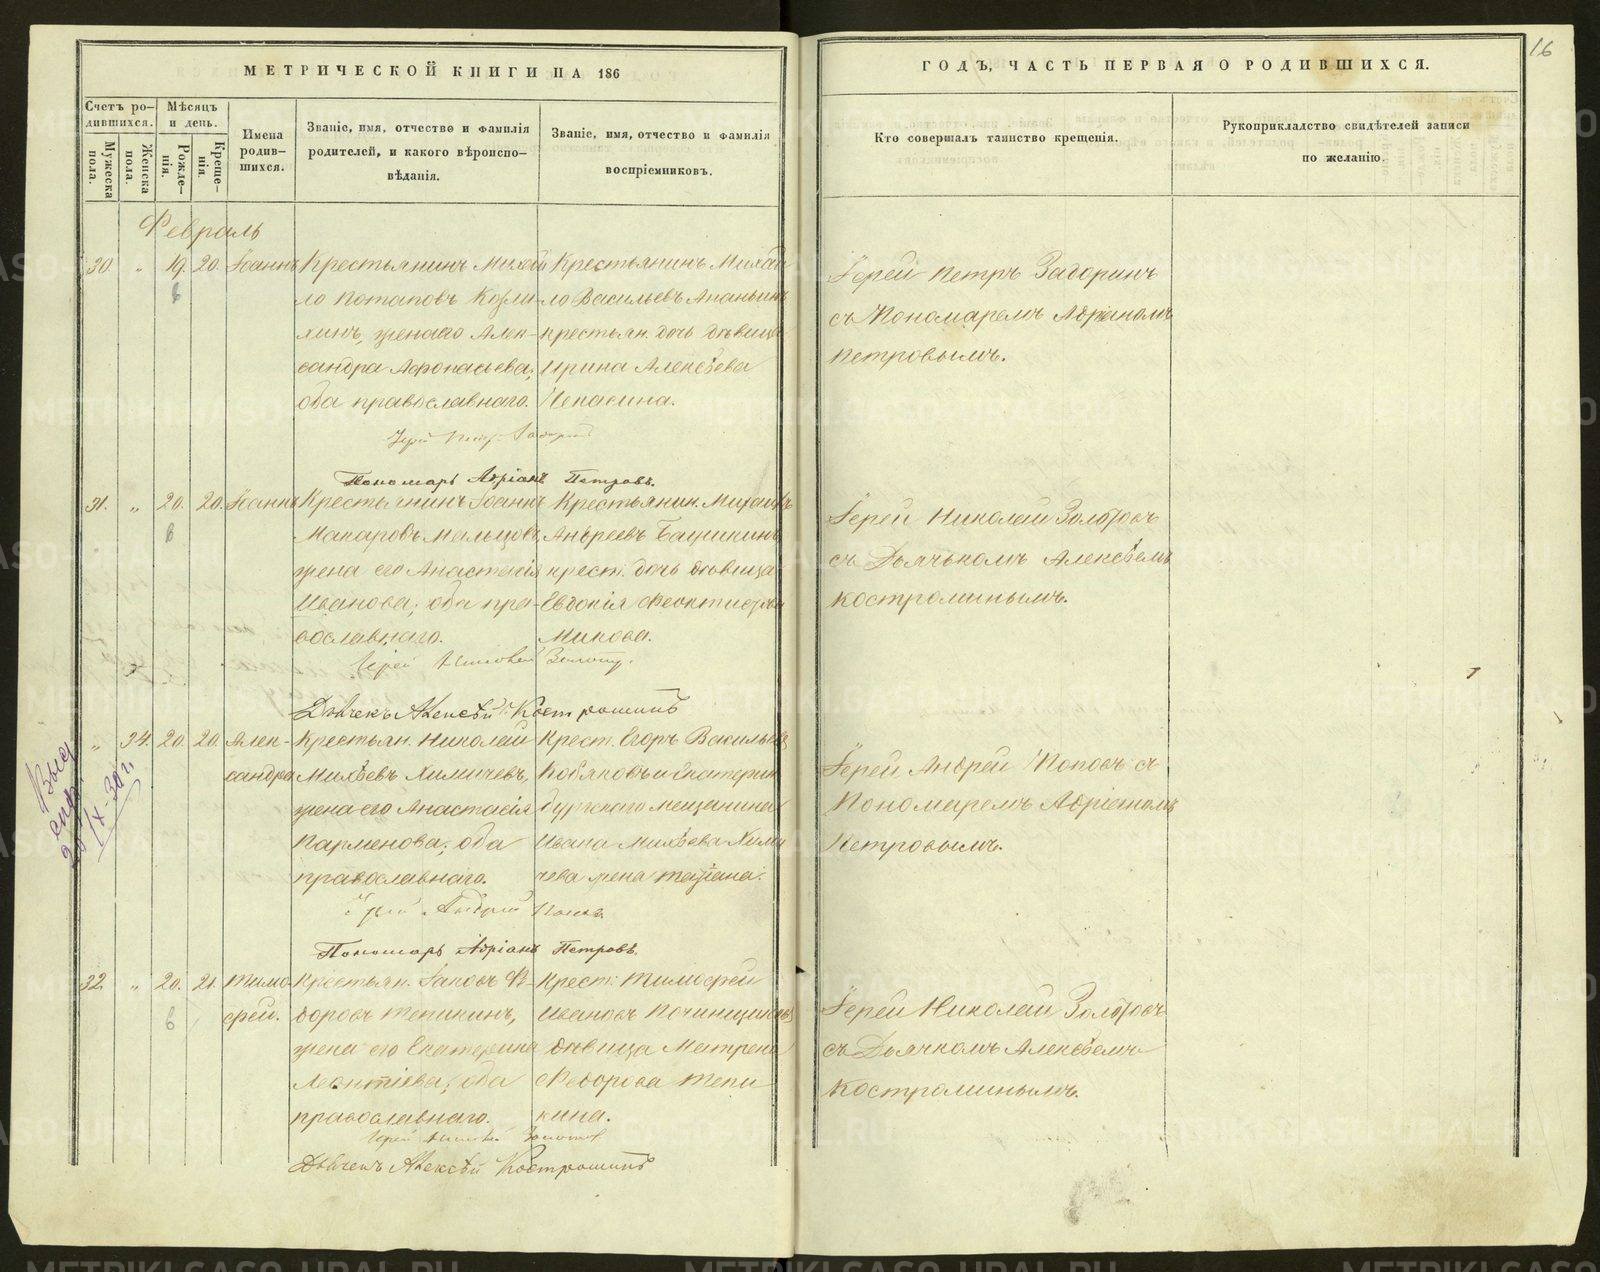 МЕТРИЧЕСКОЙ КНИГИ НА 186
ГОДЪ, ЧАСТЬ ПЕРВАЯ О РОДИВШИХСЯ.
16
Счетъ ро-
дившихся.
Мужеска пола.
Женска пола.
Мѣсяцъ
и день.
Рожде-
нія.
Креще-
нія.
Имена
родив-
шихся.
Званіе, имя, отчество и фамилія
родителей, и какого вѣроиспо-
вѣданія.
Званіе, имя, отчество и фамилія
воспріемниковъ.
Кто совершалъ таинство крещенія.
Рукоприкладство свидѣтелей записи
по желанію.
Февраль
30. " 19. 20. Іоаннъ
Крестьянинъ Михаи
ло Потаповъ
жена его Алек-
сандра Афонасьева,
оба православнаго.
Крестьянинъ Михаи
ло Васильевъ Ананьинъ
крестьян. дочь дѣвица
Ирина Алексѣева
Іерей Петръ Задоринъ
съ Пономаремъ Адріаномъ
Петровымъ.
Пономарь Адріанъ Петровъ.
31. " 20. 20. Іоаннъ
Крестьянинъ Іоаннъ
Макаровъ Мальцовъ,
жена его Анастасія
Иванова, оба пра-
вославнаго.
Крестьянин.
Андреевъ
крест. дочь дѣвица
Евдокія Феоктистова
Іерей Николай Золотовъ
съ Дьячькомъ Алексѣемъ
Костроминымъ.
Іерей Николай
Дьячекъ Алексѣй Костроминъ
" 34. 20. 20. Алек-
сандра
Крестьян. Николай
Михѣевъ Химичевъ,
жена его Анастасія
Парменова, оба
православнаго.
Крест. Егоръ Васильевъ
Кобяковъ и Екатерин
бургскаго мещанина
Ивана Михѣева Хими
чева жена Татіана.
Іерей Андрей Поповъ съ
Пономаремъ Адріаномъ
Петровымъ.
Іерей Андрей Поповъ
Пономарь Адріанъ Петровъ.
IX-30 г.
32. " 20. 21. Тимо
фей.
Крестьян. Іаковъ Ѳ-
доровъ Тепикинъ,
жена его Екатерина
Леонтіева, оба
православнаго.
Крест. Тимофей
Ивановъ
дѣвица Матрена
Ѳедорова Тепи
кина.
Іерей Николай Золотовъ
съ Дьячкомъ Алексѣемъ
Костроминымъ.
Іерей Николай Золотов
Дьячекъ Алексѣй Костроминъ
METRIKI.GASO-URAL.RU